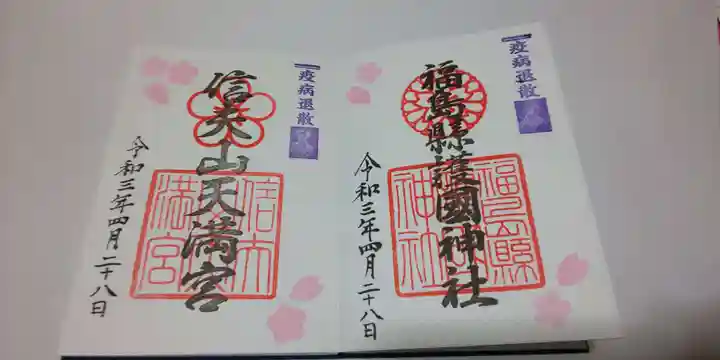 疫病退散
福島縣護國神社
福島縣護國神社
令和三年四月二十八日
疫病退散
信夫山天満宮
令和三年四月二十八日